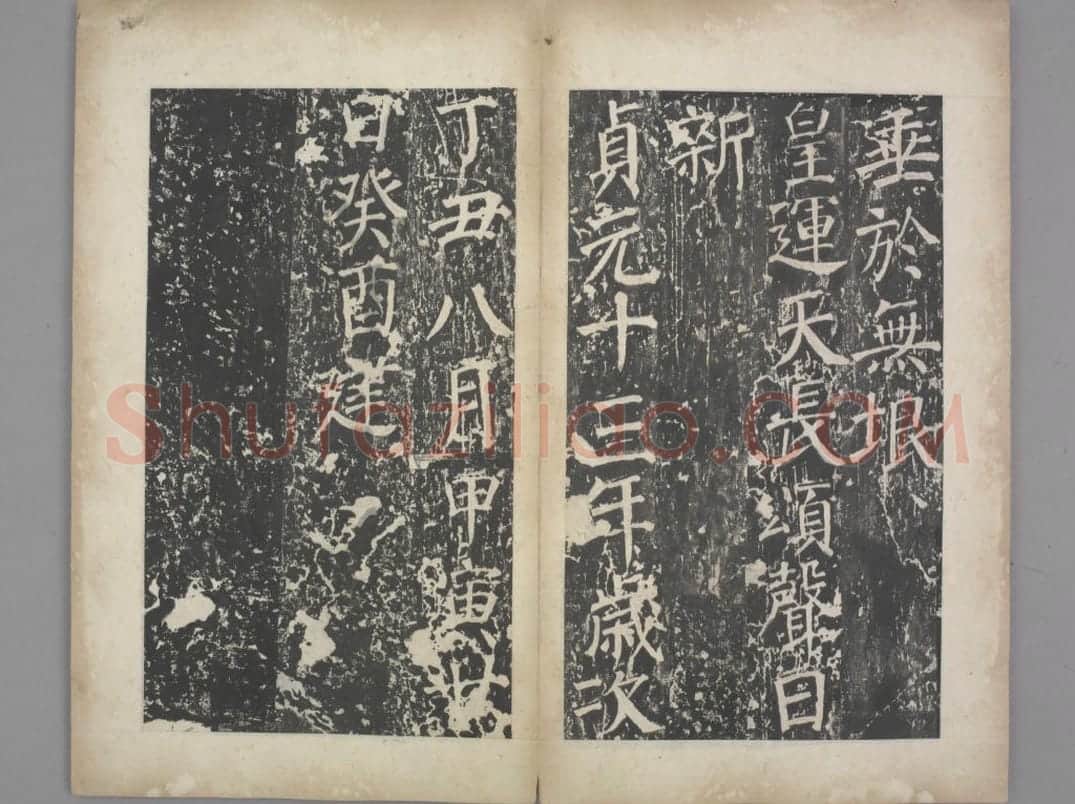 垂於無垠
皇運天長頌聲日
新
貞元十三年歲次
丁丑八月甲寅廿
日癸酉建
Shufaziliao.COM